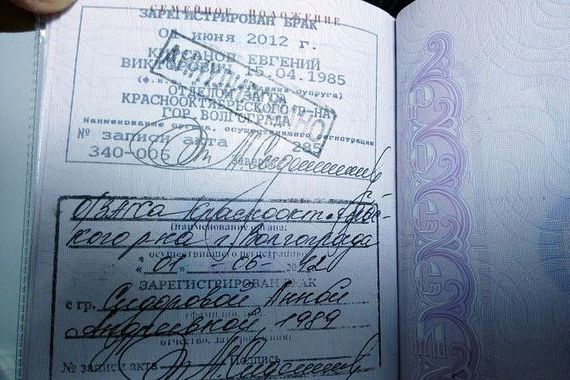 СЕМЕЙНОЕ ПОЛОЖЕНИЕ
ЗАРЕГИСТРИРОВАН БРАК
01 июня 2012 г.
ЕВГЕНИЙ
15.04.1985
(ф.и. супруга)
ОТДЕЛОМ
КРАСНООКТЯБРЬСКОГО Р-НА
ГОР. ВОЛГОГРАДА
Наименование органа, осуществившего регистрацию
№ записи акта 285
340-006 Заверено
АННУЛИРОВАНО
О/ЗАГСа Краснооктябрьс-
кого р-на г. Волгограда
(наименование органа,
осуществившего регистрацию)
« 01 » - 06 - 2012
ЗАРЕГИСТРИРОВАН БРАК
с гр. Сидоровой Анной
Андреевной, 1989
отчество, дата рождения)
№ записи акта Подпись